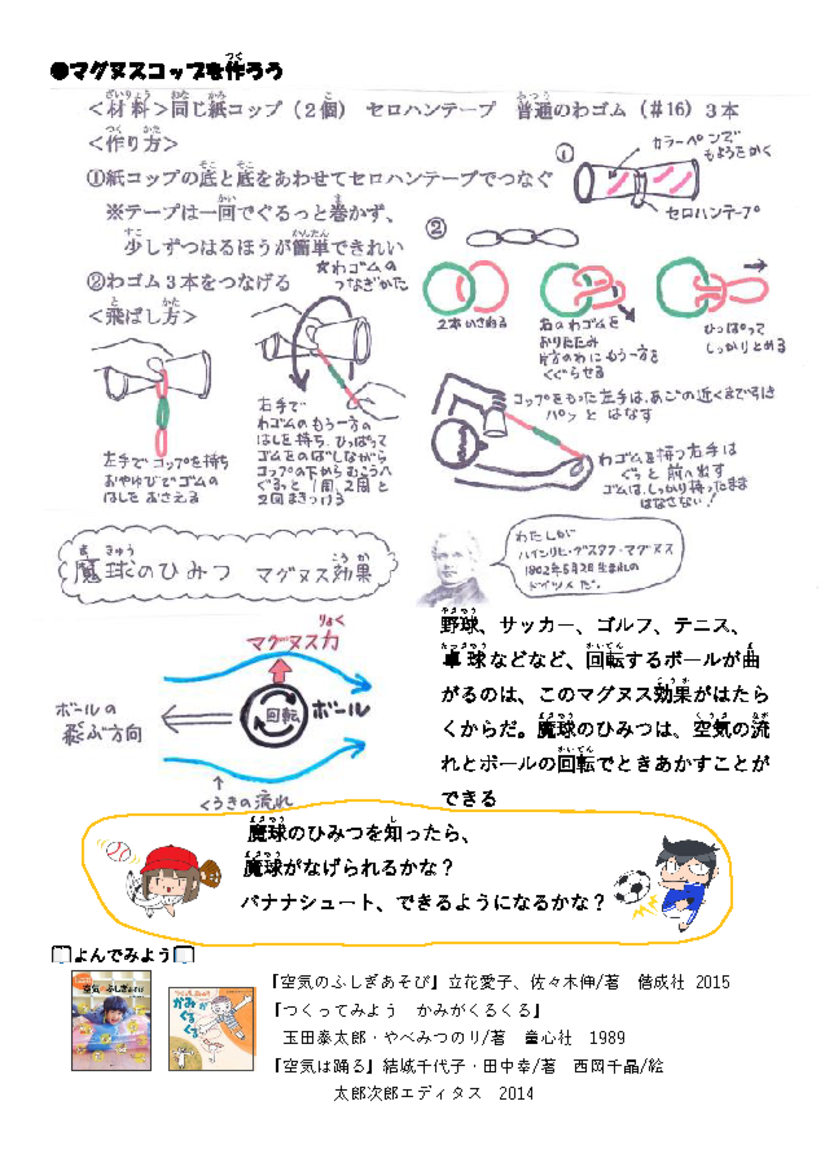 ●マグヌスコップを作ろう
＜材料＞同じ紙コップ（２個）　セロハンテープ　普通のわゴム（＃16）３本
＜作り方＞
①紙コップの底と底をあわせてセロハンテープでつなぐ
※テープは一回でぐるっと巻かず、
少しずつはるほうが簡単できれい
①
カラーペンで
もようをかく
セロハンテープ
②わゴム３本をつなげる
②
☆わゴムの
つなぎかた
2本かさねる
右のわゴムを
おりたたみ
片方のわにもう一方を
くぐらせる
ひっぱって
しっかりとめる
＜飛ばし方＞
左手でコップを持ち
おやゆびでゴムの
はしをおさえる
右手で
わゴムのもう一方の
はしを持ち、ひっぱって
ゴムをのばしながら
コップの下からむこうへ
ぐるっと1周、2周と
2回まきつける
コップをもった左手は、あごの近くまで引き
パッとはなす
わゴムを持つ右手は
ぐっと前へ出す
ゴムは、しっかり持ったまま
はなさない！
魔球のひみつ　マグヌス効果
わたしが
ハインリヒ・グスタフ・マグヌス
1802年5月2日生まれの
ドイツ人だ。
マグヌス力
ボールの
飛ぶ方向
回転
ボール
↑
くうきの流れ
野球、サッカー、ゴルフ、テニス、
卓球などなど、回転するボールが曲
がるのは、このマグヌス効果がはたら
くからだ。魔球のひみつは、空気の流
れとボールの回転でときあかすことが
できる
魔球のひみつを知ったら、
魔球がなげられるかな？
バナナシュート、できるようになるかな？
よんでみよう
空気のふしぎあそび
かみが
くる
くる
『空気のふしぎあそび』立花愛子、佐々木伸/著　偕成社　2015
『つくってみよう　かみがくるくる』
玉田泰太郎・やべみつのり/著　童心社　1989
『空気は踊る』結城千代子・田中幸/著　西岡千晶/絵
太郎次郎エディタス　2014